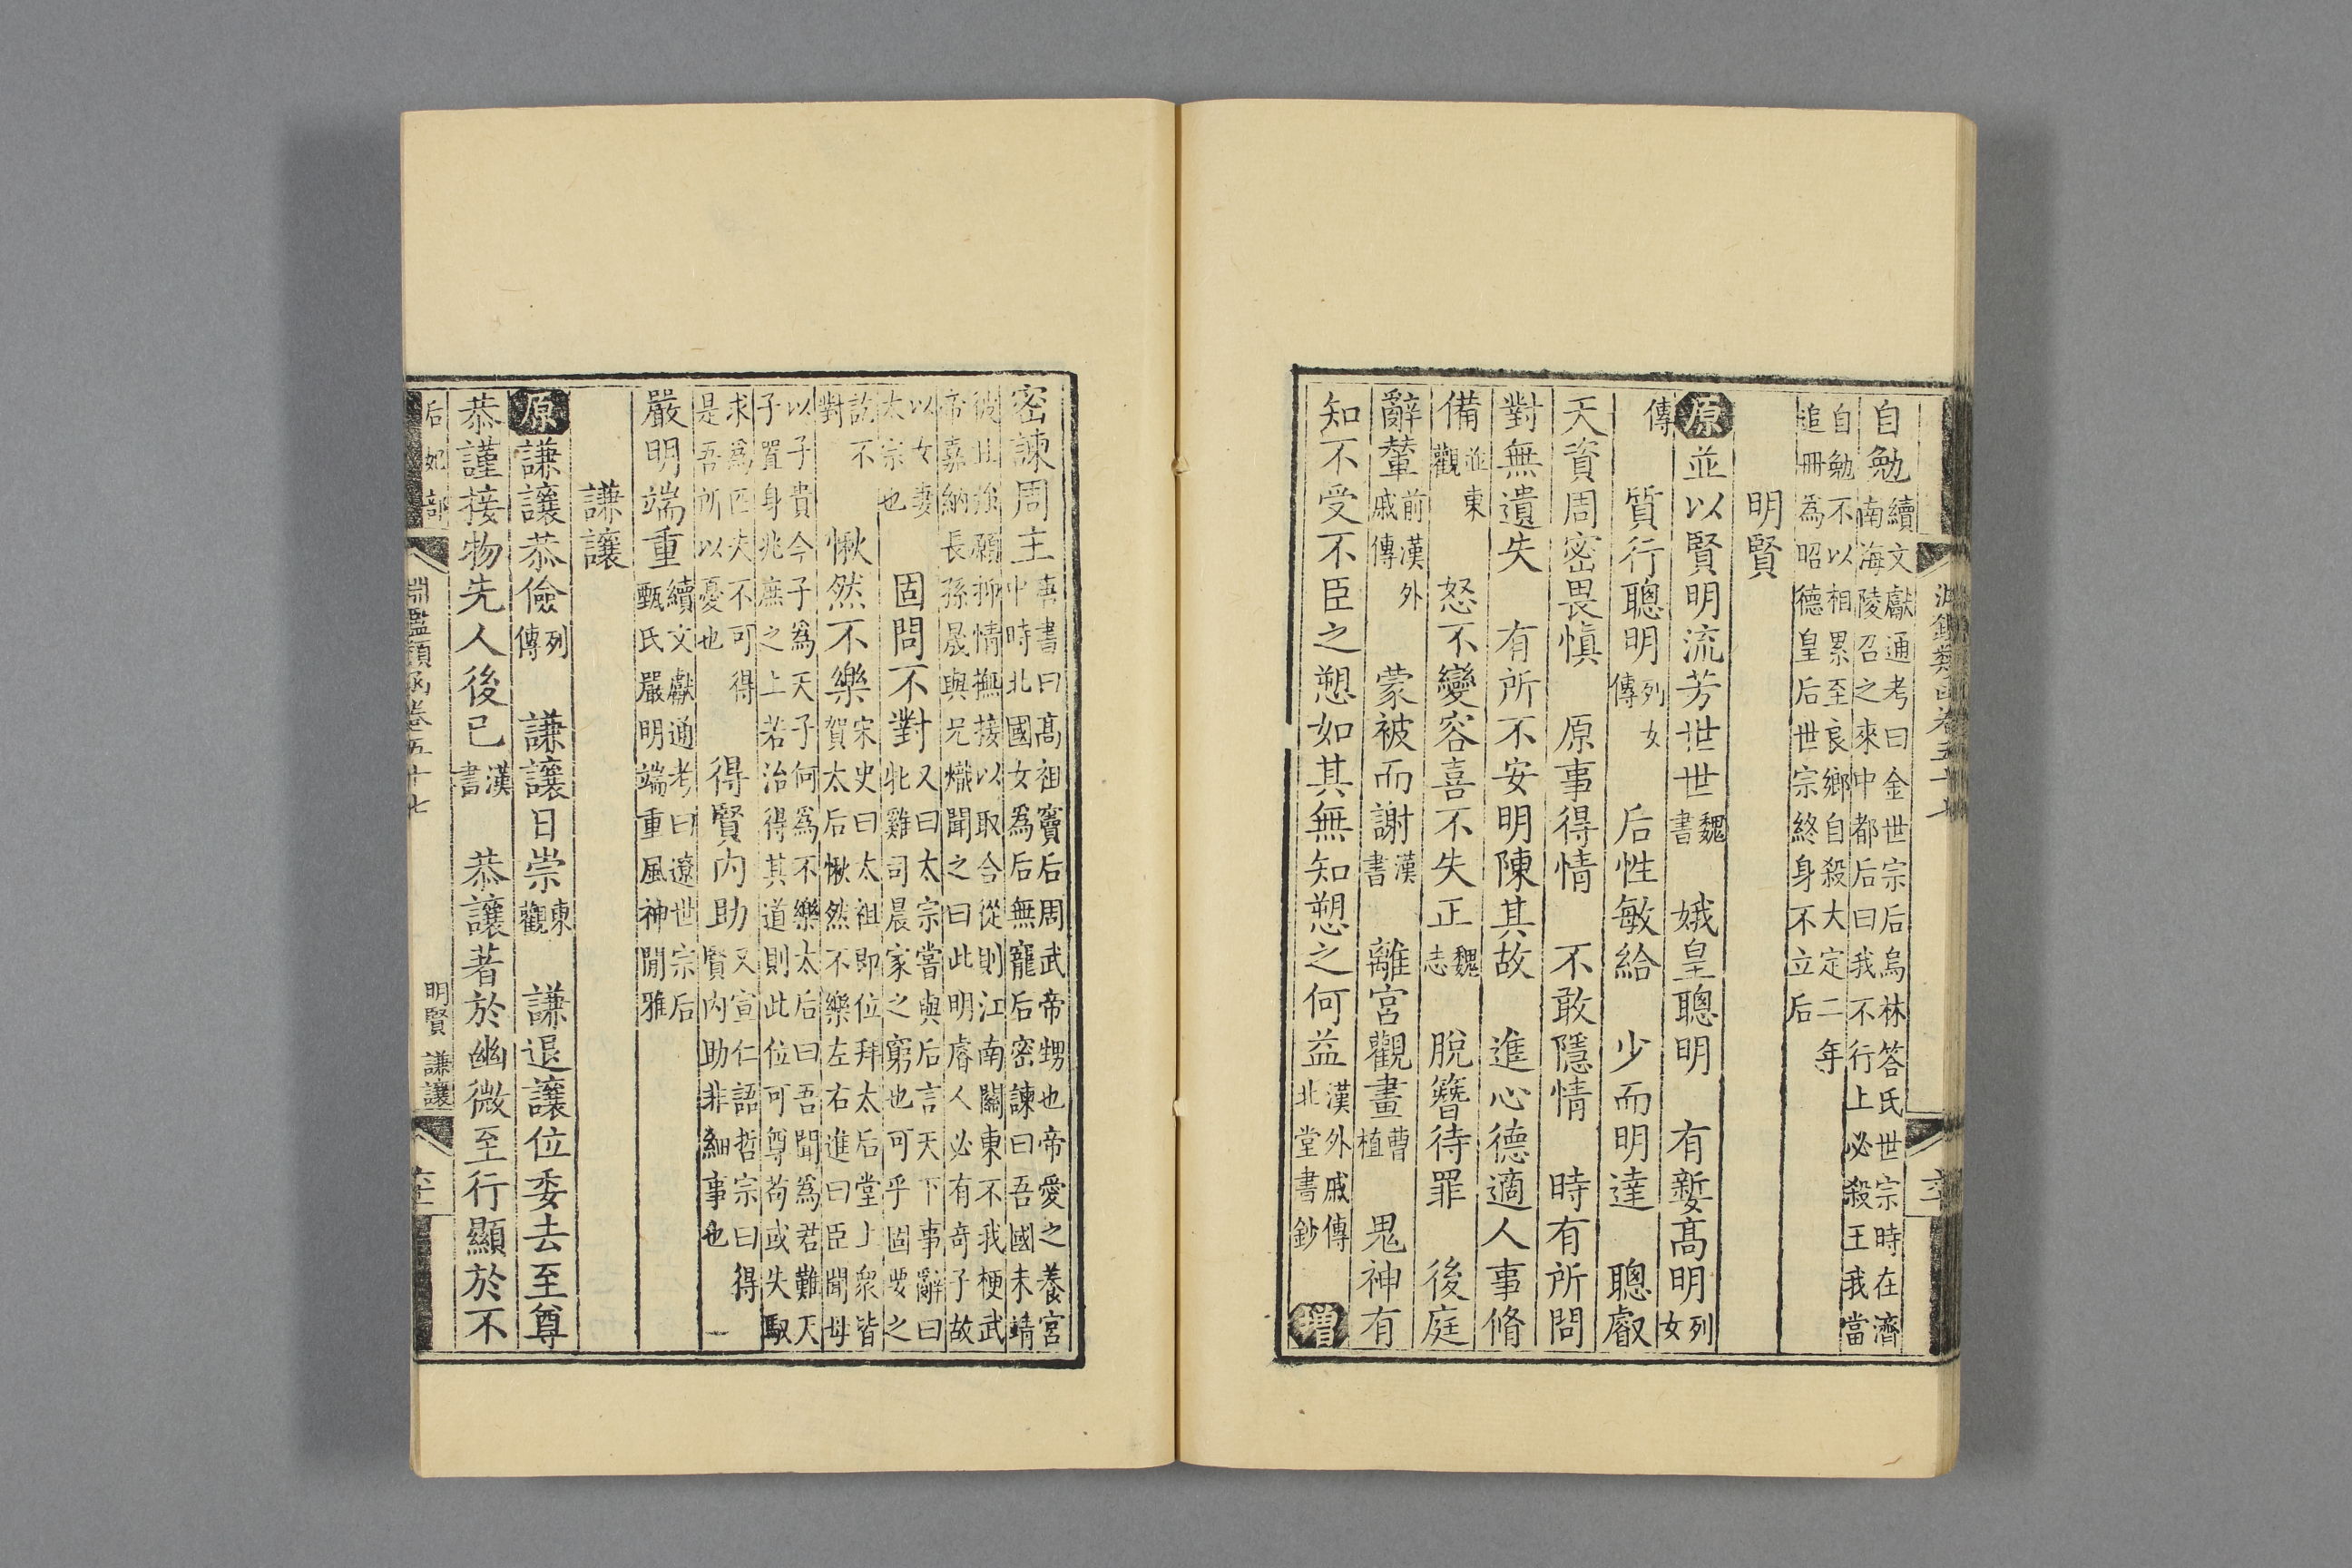 自勉續文獻通考曰金世宗后烏林答氏世宗時在濟
南海陵召之來中都后曰我不行上必殺王我當
自勉不以相累至良鄉自殺大定二年
追冊為昭德皇后世宗終身不立后
明賢
原並以賢明流芳世世魏書 娥皇聰明 有㜪高明列女
傳 質行聰明列女傳 后性敏給 少而明達 聰叡
天資周密畏慎 原事得情 不敢隱情 時有所問
對無遺失 有所不安明陳其故 進心德適人事脩
備並東觀 怒不變容喜不失正魏志 脫簪待罪 後庭
辭輦前漢外戚傳 蒙被而謝漢書 離宮觀畫曹植 鬼神有
知不受不臣之愬如其無知愬之何益漢外戚傳北堂書鈔 增
密諫周主唐書曰高祖竇后周武帝甥也帝愛之養宮
中時北國女為后無寵后密諫曰吾國未靖
彼且強願抑情撫接以取合從則江南關東不我梗武
帝嘉納長孫晟與兄熾聞之曰此明睿人必有奇子故
以女妻
太宗也 固問不對又曰太宗嘗與后言天下事辭曰
牝雞司晨家之窮也可乎固要之
訖不
對 愀然不樂宋史曰太祖即位拜太后堂上眾皆
賀太后愀然不樂左右進曰臣聞母
以子貴今子為天子何為不樂太后曰吾聞為君難天
子置身兆庶之上若治得其道則此位可尊苟或失馭
求為匹夫不可得
是吾所以憂也 得賢內助又宣仁語哲宗曰得一
賢內助非細事也
嚴明端重續文獻通考曰遼世宗后
甄氏嚴明端重風神閒雅
謙讓
原謙讓恭儉列傳 謙讓日崇東觀 謙退讓位委去至尊
恭謹接物先人後已漢書 恭讓著於幽微至行顯於不
后妃部 淵鑑類函卷五十七 明賢 謙讓